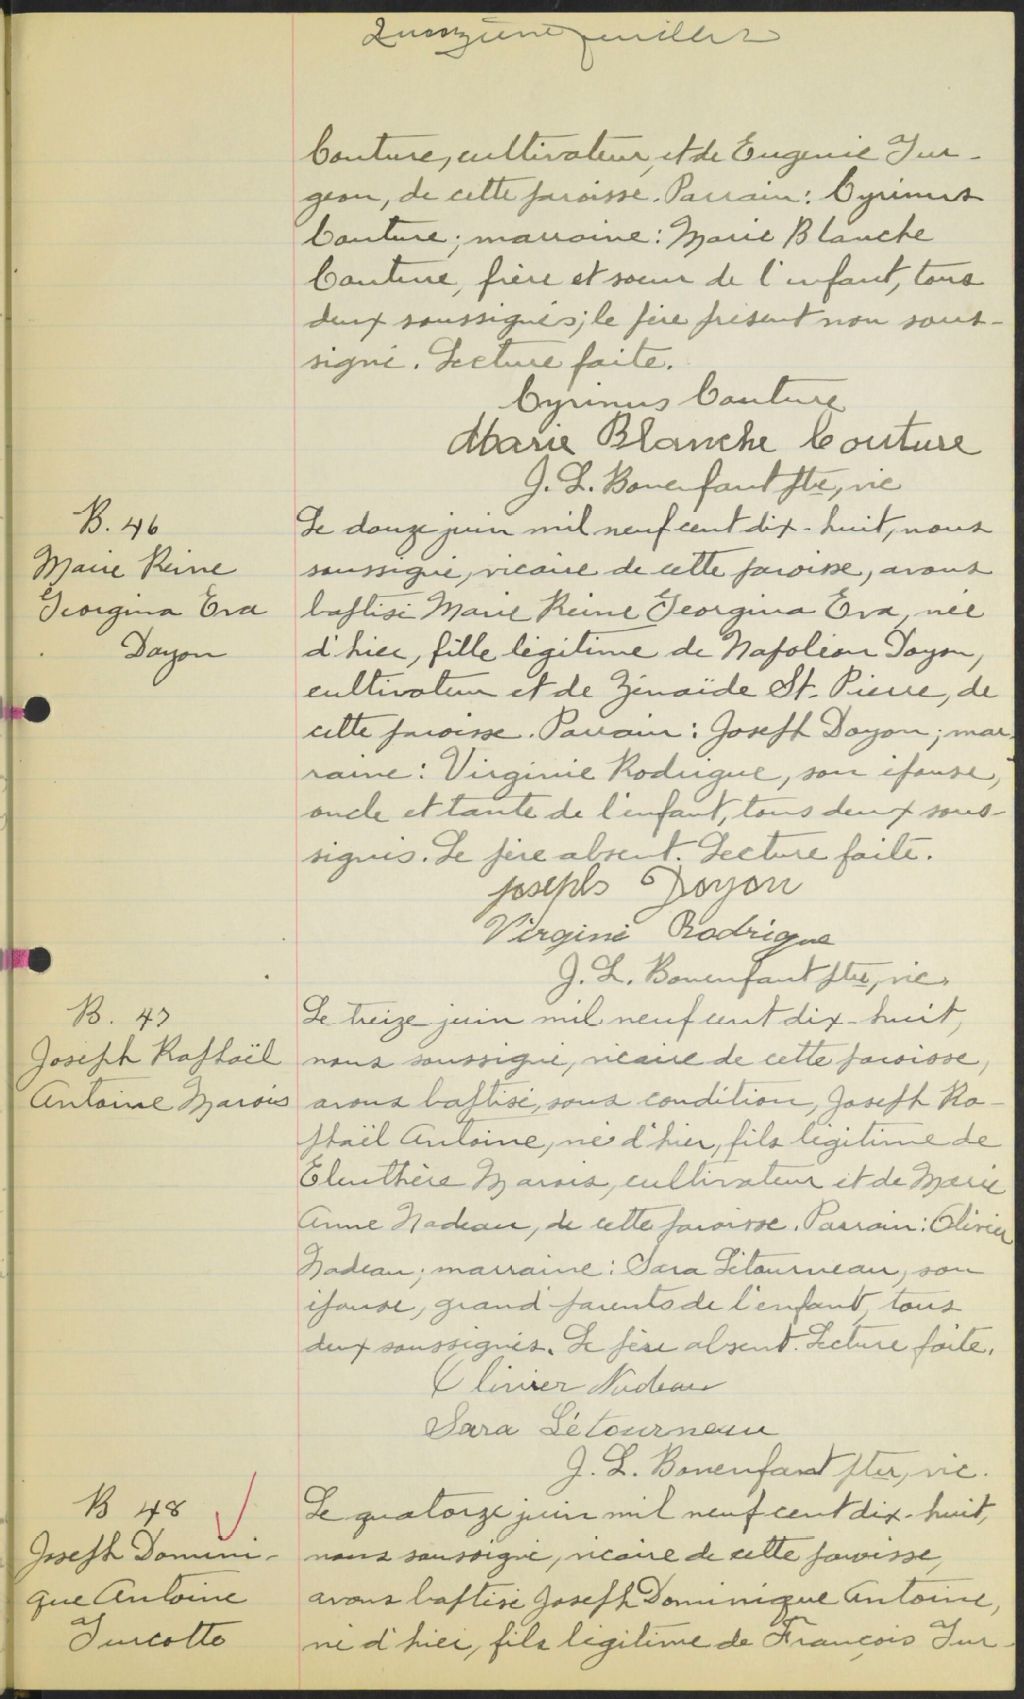 Quinzième feuillet
Couture, cultivateur, et de Eugénie Tur-
geon, de cette paroisse. Parrain: Cyrinus
Couture; marraine: Marie Blanche
Couture, frère et soeur de l'enfant, tous
deux soussignés; le père présent non sous-
signé. Lecture faite.
Cyrinus Couture
Marie Blanche Couture
J. L. Bonenfant ptre, vic
B. 46
Marie Reine
Georgina Eva
Doyon
Le douze juin mil neuf cent dix-huit, nous
soussigné, vicaire de cette paroisse, avons
baptisé Marie Reine Georgina Eva, née
d'hier, fille légitime de Napoléon Doyon,
cultivateur et de Zénaïde St-Pierre, de
cette paroisse. Parrain: Joseph Doyon; mar-
raine: Virginie Rodrigue, son épouse,
oncle et tante de l'enfant, tous deux sous-
signés. Le père absent. Lecture faite.
Joseph Doyon
Virgini Rodrigue
J. L. Bonenfant ptre, vic.
B. 47
Joseph Raphaël
Antoine Marois
Le treize juin mil neuf cent dix-huit,
nous soussigné, vicaire de cette paroisse,
avons baptisé, sous condition, Joseph Ra-
phaël Antoine, né d'hier, fils légitime de
Eleuthère Marois, cultivateur et de Marie
Anne Nadeau, de cette paroisse. Parrain: Olivier
Nadeau; marraine: Sara Létourneau, son
épouse, grand'parents de l'enfant, tous
deux soussignés. Le père absent. Lecture faite.
Olivier Nadeau
Sara Létourneau
J. L. Bonenfant ptre, vic.
B 48
Joseph Domini-
que Antoine
Turcotte
Le quatorze juin mil neuf cent dix-huit,
nous soussigné, vicaire de cette paroisse,
avons baptisé Joseph Dominique Antoine,
né d'hier, fils légitime de François Tur-